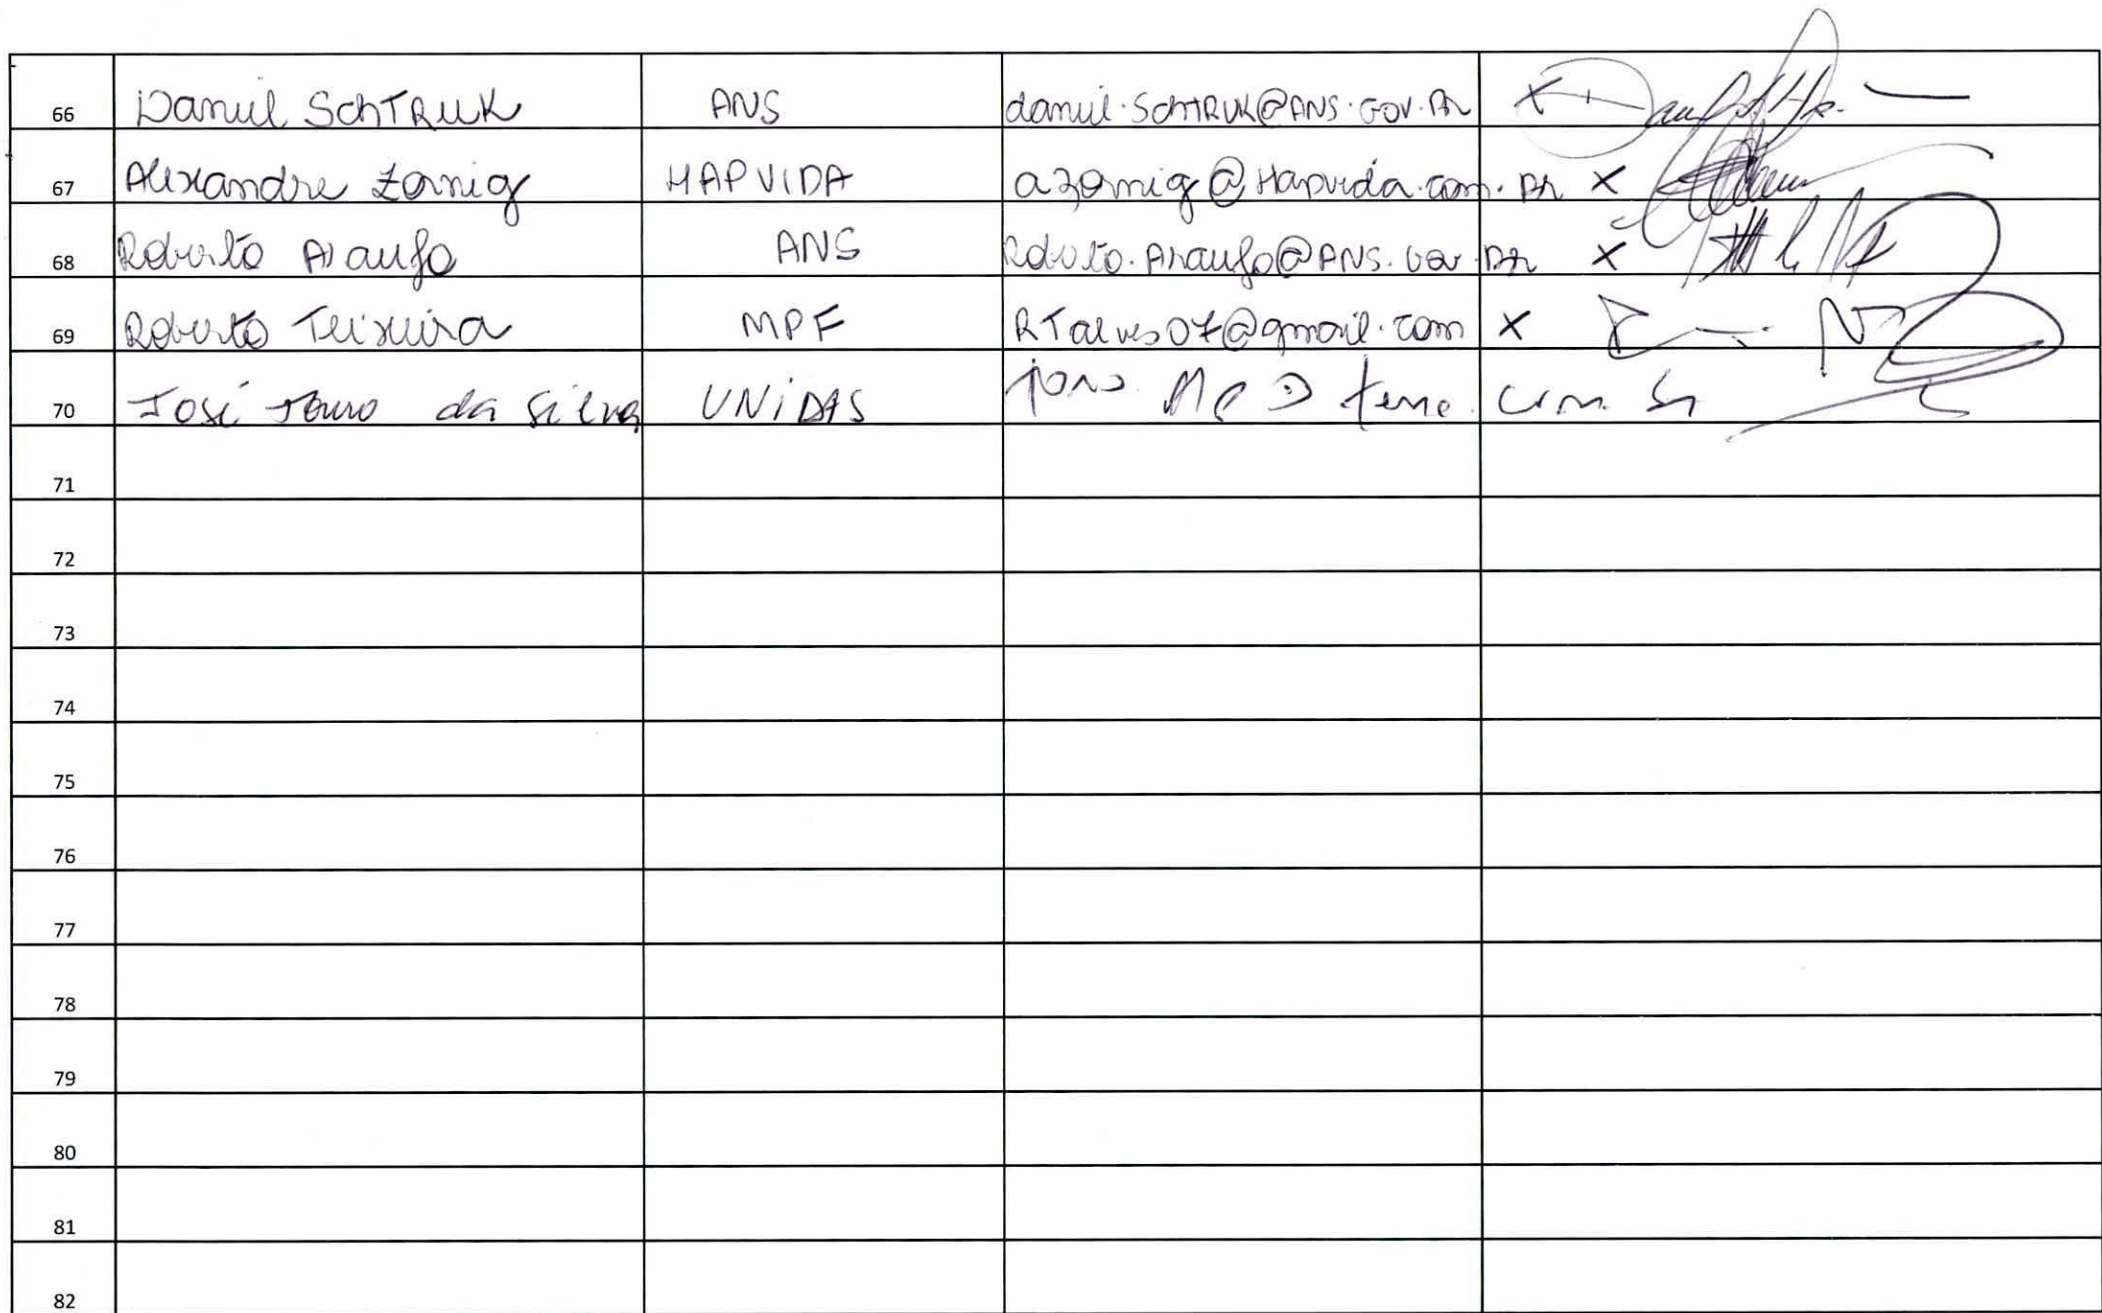 66 Daniel SchTRUK ANS daniel.SchTRUK@ANS.GOV.BR X
67 Alexandre Zornig HAPVIDA azornig@Hapvida.com.BR X
68 Roberto Araujo ANS Roberto.Araujo@ANS.Gov.BR X
69 Roberto Teixeira MPF RTalves07@gmail.com X
70 José da Silva UNiDAS
71
72
73
74
75
76
77
78
79
80
81
82